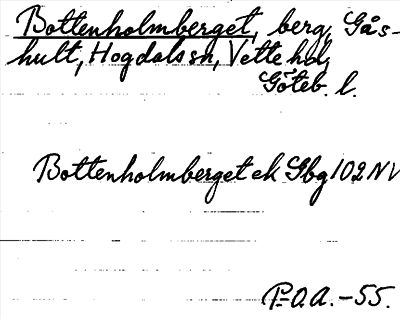 Bottenholmberget, berg, Gås-
hult, Hogdals sn, Vette hd,
Göteb. l.
Bottenholmberget ek Gbg 102 NV
P-O.A. -55.